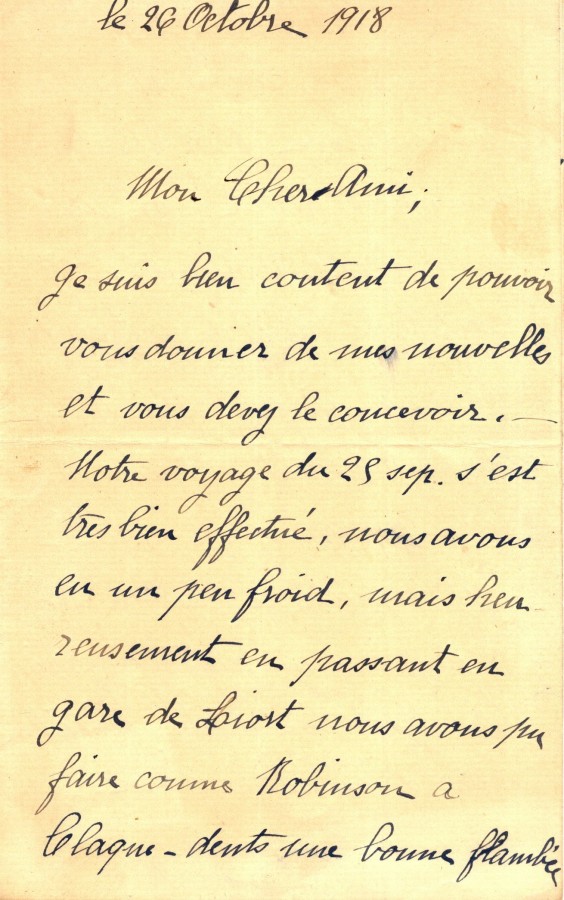 le 26 Octobre 1918
Mon Cher Ami,
Je suis bien content de pouvoir
vous donner de mes nouvelles
et vous devez le concevoir. —
Notre voyage du sep. s'est
très bien effectué, nous avons
eu un peu froid, mais heu
reusement en passant en
gare de nous avons pu
faire comme Robinson a
Claque-dents une bonne flambée